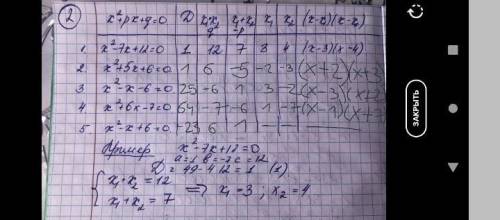 2 x²+px+q=0 D x₁x₂ q x₁+x₂ -p x₁ x₂ (x-x₁)(x-x₂)
1. x²-7x+12=0 1 12 7 3 4 (x-3)(x-4)
2. x²+5x+6=0 1 6 -5 -2 -3 (x+2)(x+3
3 x²-x-6=0 25 -6 1 3 -2 (x-3)(x+2
4 x²+6x-7=0 64 -7 -6 1 -7 (x-1)(x+7
5. x²-x+6=0 -23 6 1 - -
Пример x²-7x+12=0
a=1 b=-7 c=12
D=49-4·12=1 (1)
x₁·x₂=12
x₁+x₂=7 ⇒ x₁=3; x₂=4
ЗАКРЫТЬ